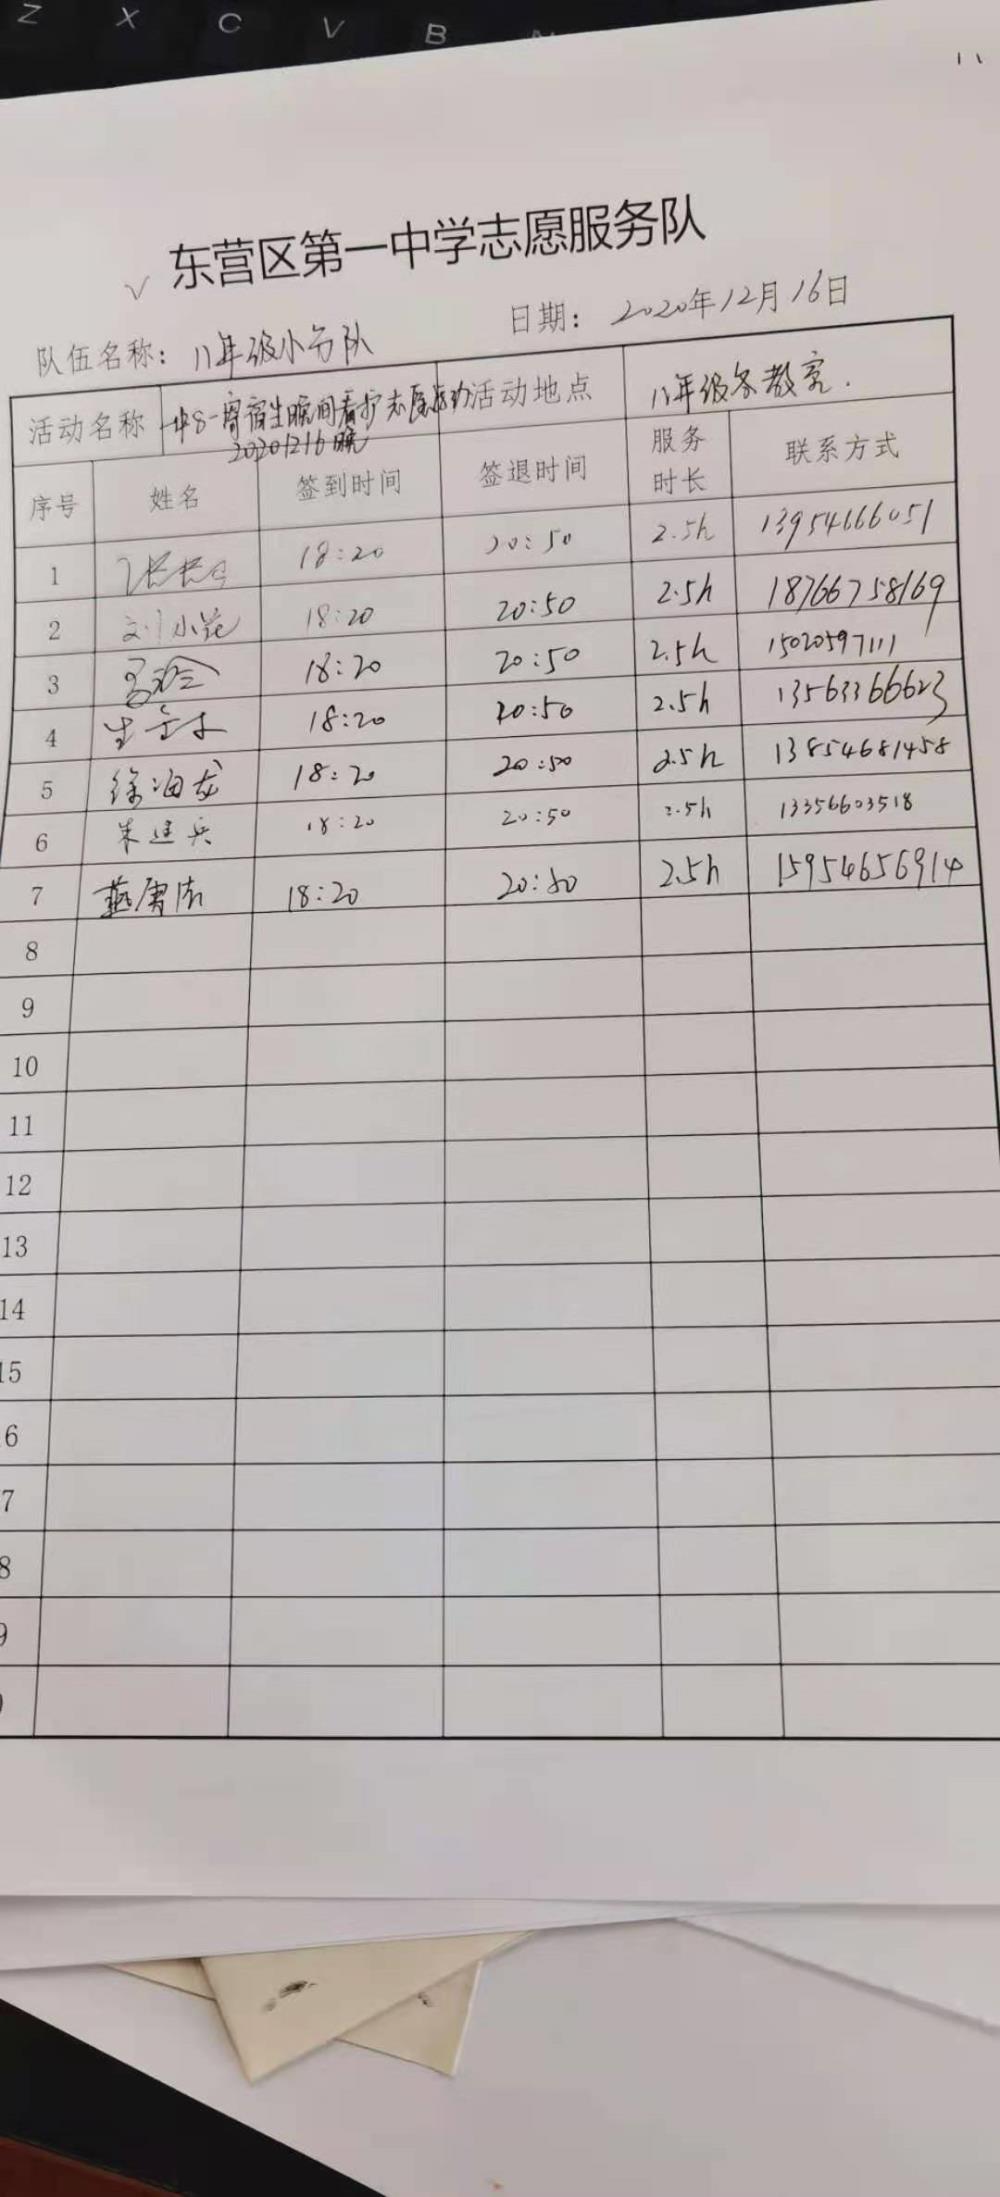 Z X C V B N
东营区第一中学志愿服务队
队伍名称：八年级小分队 日期：2020年12月16日
活动名称 一中8一寄宿生晚间看护志愿活动 20201216晚 活动地点 八年级各教室.
序号 姓名 签到时间 签退时间 服务时长 联系方式
1 18:20 20:50 2.5h 13954666051
2 刘小花 18:20 20:50 2.5h 18766758169
3 18:20 20:50 2.5h 15020597111
4 18:20 20:50 2.5h 13563366623
5 徐海龙 18:20 20:50 2.5h 13854681458
6 朱建兵 18:20 20:50 2.5h 13356603518
7 18:20 20:50 2.5h 15954656914
8
9
10
11
12
13
14
15
6
7
8
9